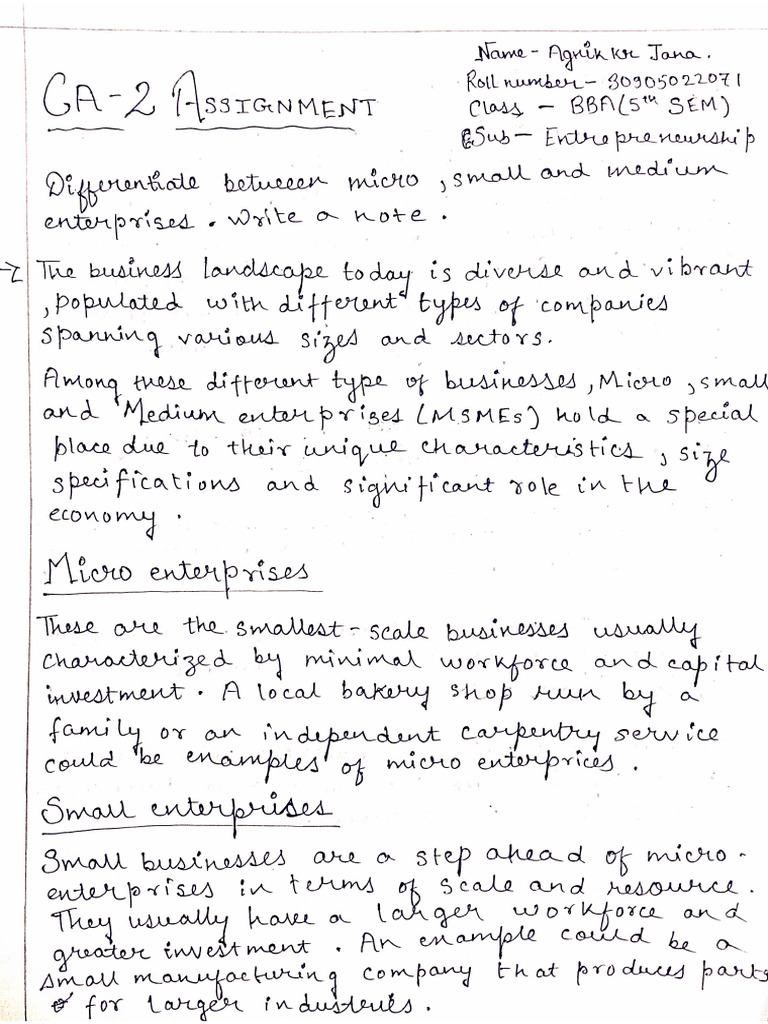 Name - Agnik kr Jana.
Roll number - 30905022071
CA-2 ASSIGNMENT
Class - BBA (5th SEM)
Sub - Entrepreneurship
Differentiate between micro, small and medium
enterprises. Write a note.
→ The business landscape today is diverse and vibrant
, populated with different types of companies
spanning various sizes and sectors.
Among these different type of businesses, Micro, small
and Medium enterprises (MSMEs) hold a special
place due to their unique characteristics, size
specifications and significant role in the
economy.
Micro enterprises
These are the smallest-scale businesses usually
characterized by minimal workforce and capital
investment. A local bakery shop run by a
family or an independent carpentry service
could be enamples of micro enterprices.
Small enterprises
Small businesses are a step ahead of micro-
enterprises in terms of scale and resource.
They usually have a larger workforce and
greater investment. An example could be a
small manufacturing company that produces parts
for larger industeries.